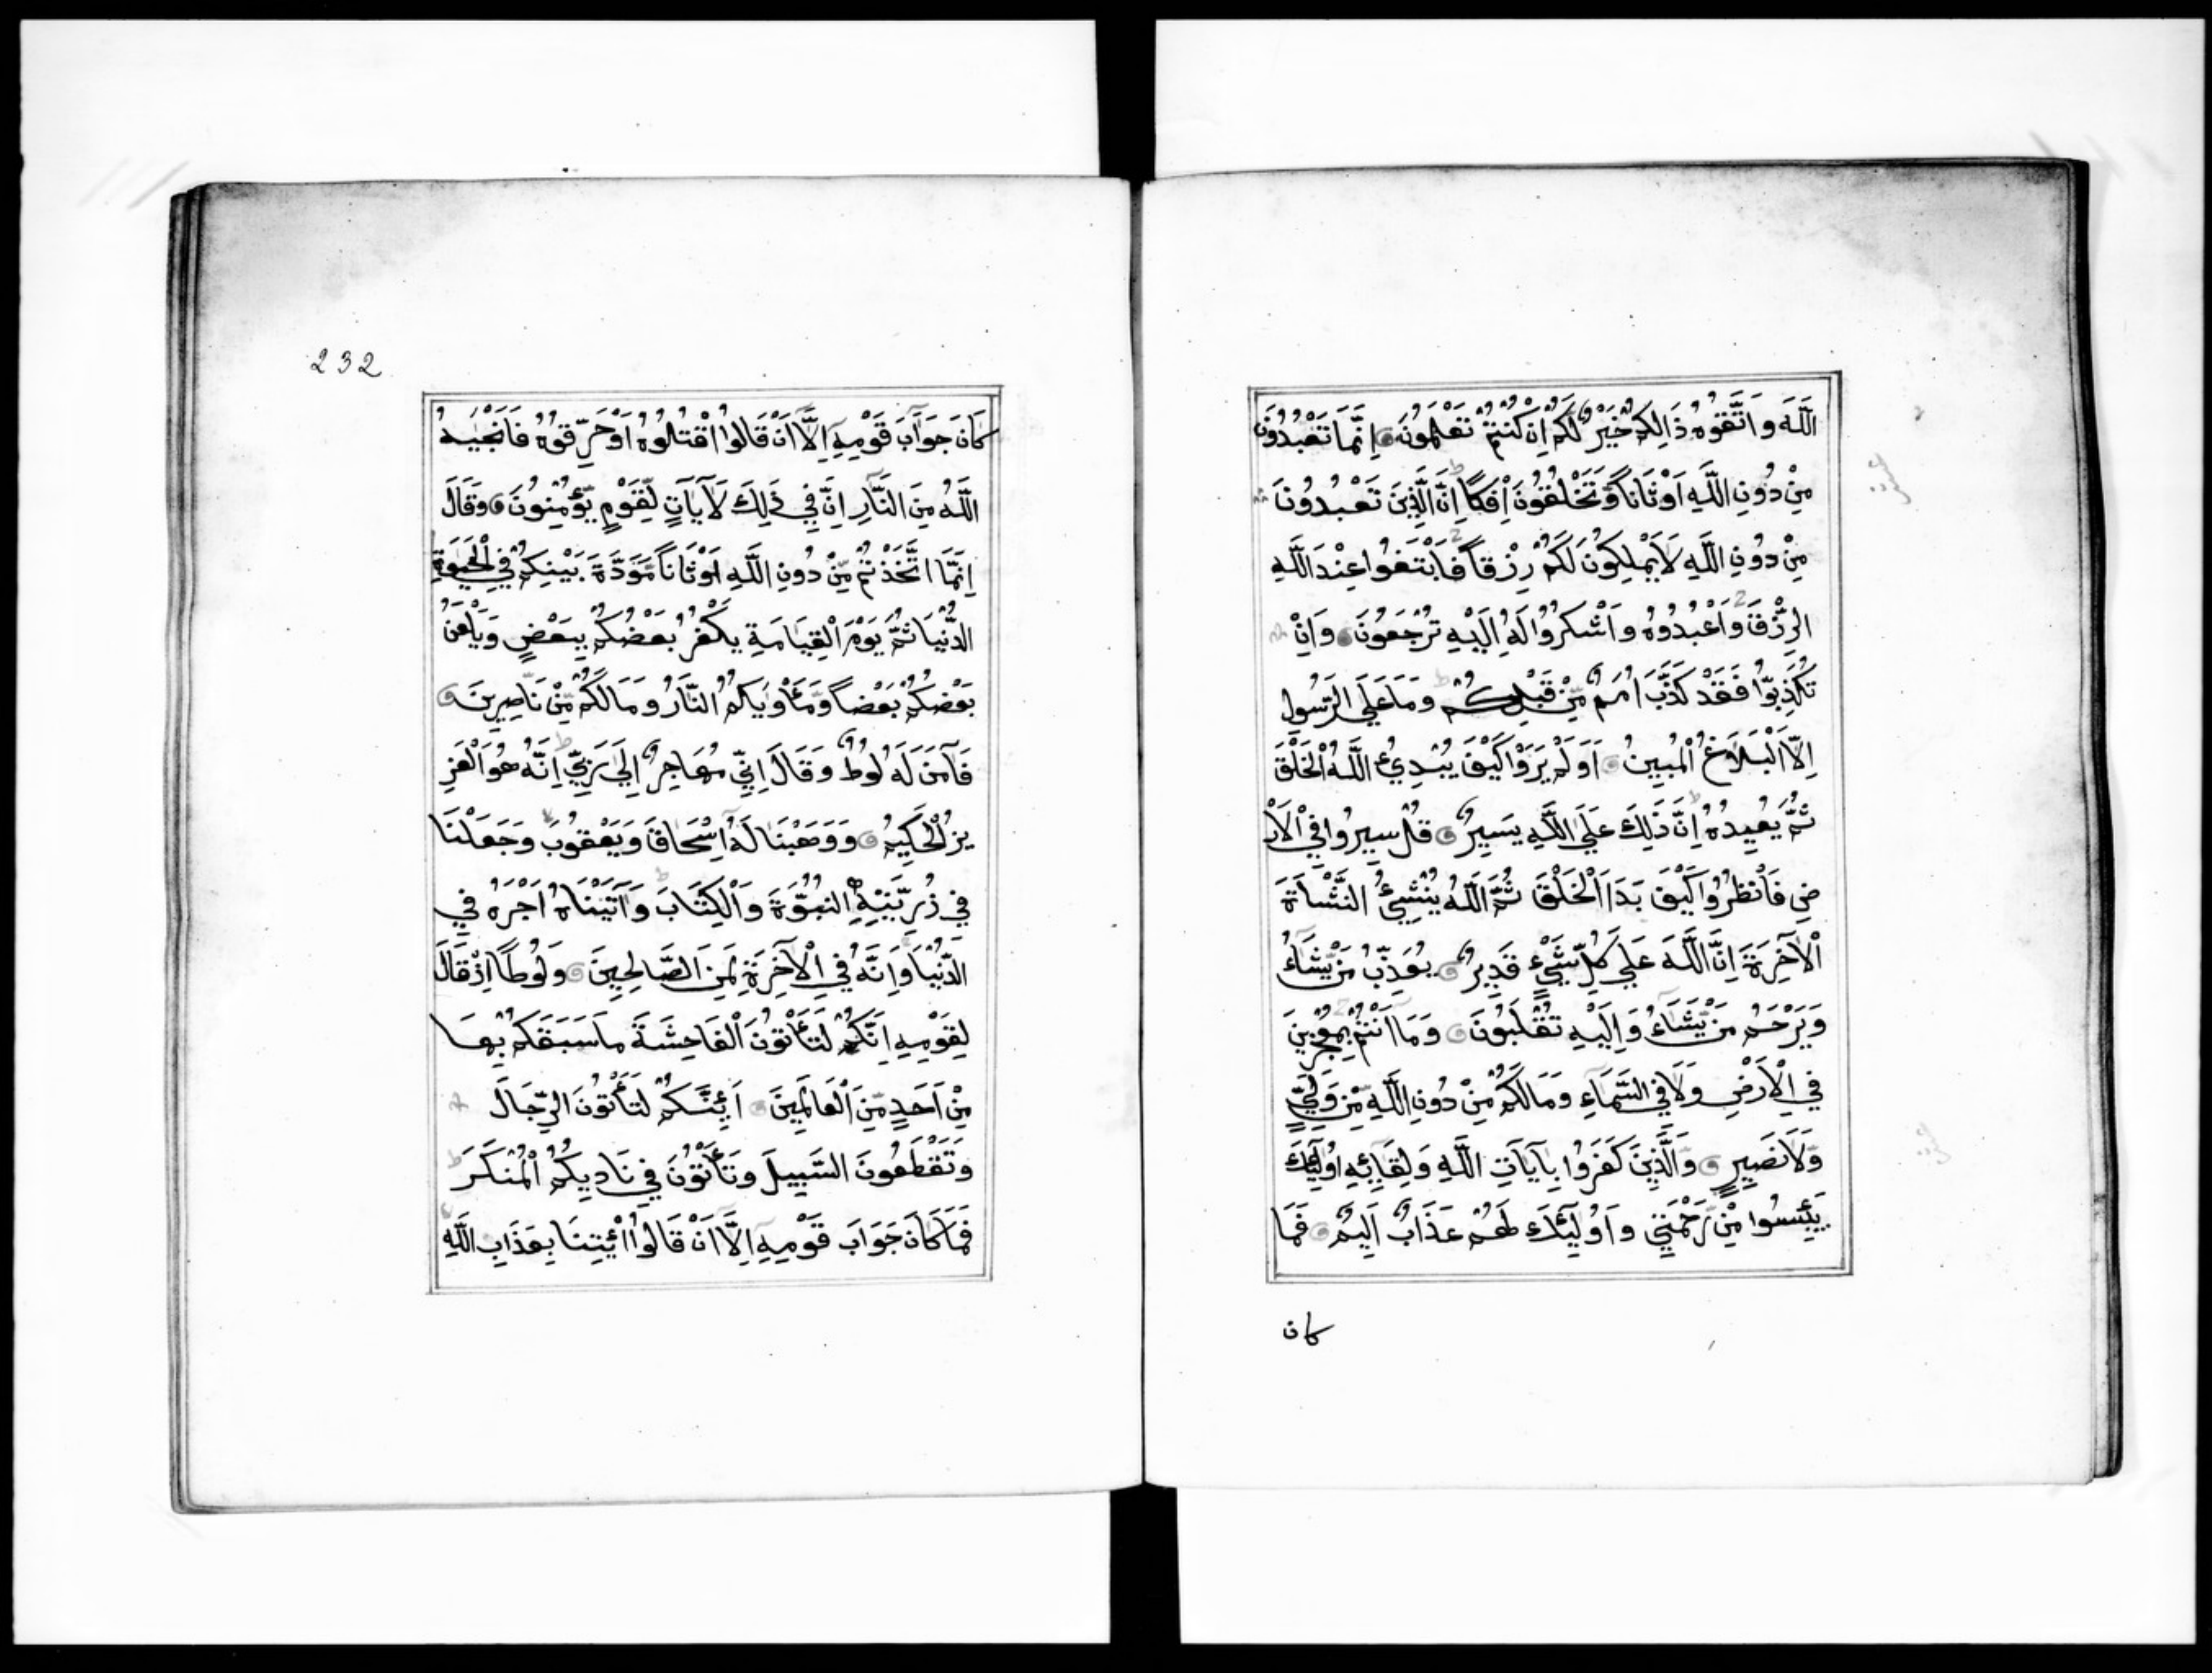 اللَّهَ وَاتَّقُوهُ ذَالِكُمْ خَيْرٌ لَّكُمْ اِنْ كُنْتُمْ تَعْلَمُونَ اِنَّمَا تَعْبُدُونَ
مِنْ دُونِ اللَّهِ اَوْثَانًا وَّتَخْلُقُونَ اِفْكًا اِنَّ الَّذِينَ تَعْبُدُونَ
مِنْ دُونِ اللَّهِ لَا يَمْلِكُونَ لَكُمْ رِزْقًا فَابْتَغُوا عِنْدَ اللَّهِ
الرِّزْقَ وَاعْبُدُوهُ وَاشْكُرُوا لَهُ اِلَيْهِ تُرْجَعُونَ وَاِنْ
تُكَذِّبُوا فَقَدْ كَذَّبَ اُمَمٌ مِّنْ قَبْلِكُمْ وَمَا عَلَى الرَّسُولِ
اِلَّا الْبَلَاغُ الْمُبِينُ اَوَلَمْ يَرَوْا كَيْفَ يُبْدِئُ اللَّهُ الْخَلْقَ
ثُمَّ يُعِيدُهُ اِنَّ ذَلِكَ عَلَى اللَّهِ يَسِيرٌ قُلْ سِيرُوا فِي الْاَرْ
ضِ فَانْظُرُوا كَيْفَ بَدَاَ الْخَلْقَ ثُمَّ اللَّهُ يُنْشِئُ النَّشْاَةَ
الْآخِرَةَ اِنَّ اللَّهَ عَلَى كُلِّ شَيْءٍ قَدِيرٌ يُعَذِّبُ مَنْ يَّشَاءُ
وَيَرْحَمُ مَنْ يَّشَاءُ وَاِلَيْهِ تُقْلَبُونَ وَمَا اَنْتُمْ بِمُعْجِزِينَ
فِي الْاَرْضِ وَلَا فِي السَّمَاءِ وَمَا لَكُمْ مِّنْ دُونِ اللَّهِ مِنْ وَّلِيٍّ
وَّلَا نَصِيرٍ وَالَّذِينَ كَفَرُوا بِآيَاتِ اللَّهِ وَلِقَائِهِ اُولَئِكَ
يَئِسُوا مِنْ رَّحْمَتِي وَاُولَئِكَ لَهُمْ عَذَابٌ اَلِيمٌ فَمَا
كان
232
كَانَ جَوَابَ قَوْمِهِ اِلَّا اَنْ قَالُوا اقْتُلُوهُ اَوْ حَرِّقُوهُ فَاَنْجَيهُ
اللَّهُ مِنَ النَّارِ اِنَّ فِي ذَلِكَ لَآيَاتٍ لِّقَوْمٍ يُّؤْمِنُونَ وَقَالَ
اِنَّمَا اتَّخَذْتُمْ مِّنْ دُونِ اللَّهِ اَوْثَانًا مَّوَدَّةَ بَيْنِكُمْ فِي الْحَيَوةِ
الدُّنْيَا ثُمَّ يَوْمَ الْقِيَامَةِ يَكْفُرُ بَعْضُكُمْ بِبَعْضٍ وَيَلْعَنُ
بَعْضُكُمْ بَعْضًا وَّمَأْوَيكُمُ النَّارُ وَمَا لَكُمْ مِّنْ نَّاصِرِينَ
فَآمَنَ لَهُ لُوطٌ وَقَالَ اِنِّي مُهَاجِرٌ اِلَى رَبِّي اِنَّهُ هُوَ الْعَزِ
يزُ الْحَكِيمُ وَوَهَبْنَا لَهُ اِسْحَاقَ وَيَعْقُوبَ وَجَعَلْنَا
فِي ذُرِّيَّتِهِ النُّبُوَّةَ وَالْكِتَابَ وَآتَيْنَاهُ اَجْرَهُ فِي
الدُّنْيَا وَاِنَّهُ فِي الْآخِرَةِ لَمِنَ الصَّالِحِينَ وَلُوطًا اِذْ قَالَ
لِقَوْمِهِ اِنَّكُمْ لَتَأْتُونَ الْفَاحِشَةَ مَا سَبَقَكُمْ بِهَا
مِنْ اَحَدٍ مِّنَ الْعَالَمِينَ اَئِنَّكُمْ لَتَأْتُونَ الرِّجَالَ
وَتَقْطَعُونَ السَّبِيلَ وَتَأْتُونَ فِي نَادِيكُمُ الْمُنْكَرَ
فَمَا كَانَ جَوَابَ قَوْمِهِ اِلَّا اَنْ قَالُوا ائْتِنَا بِعَذَابِ اللَّهِ